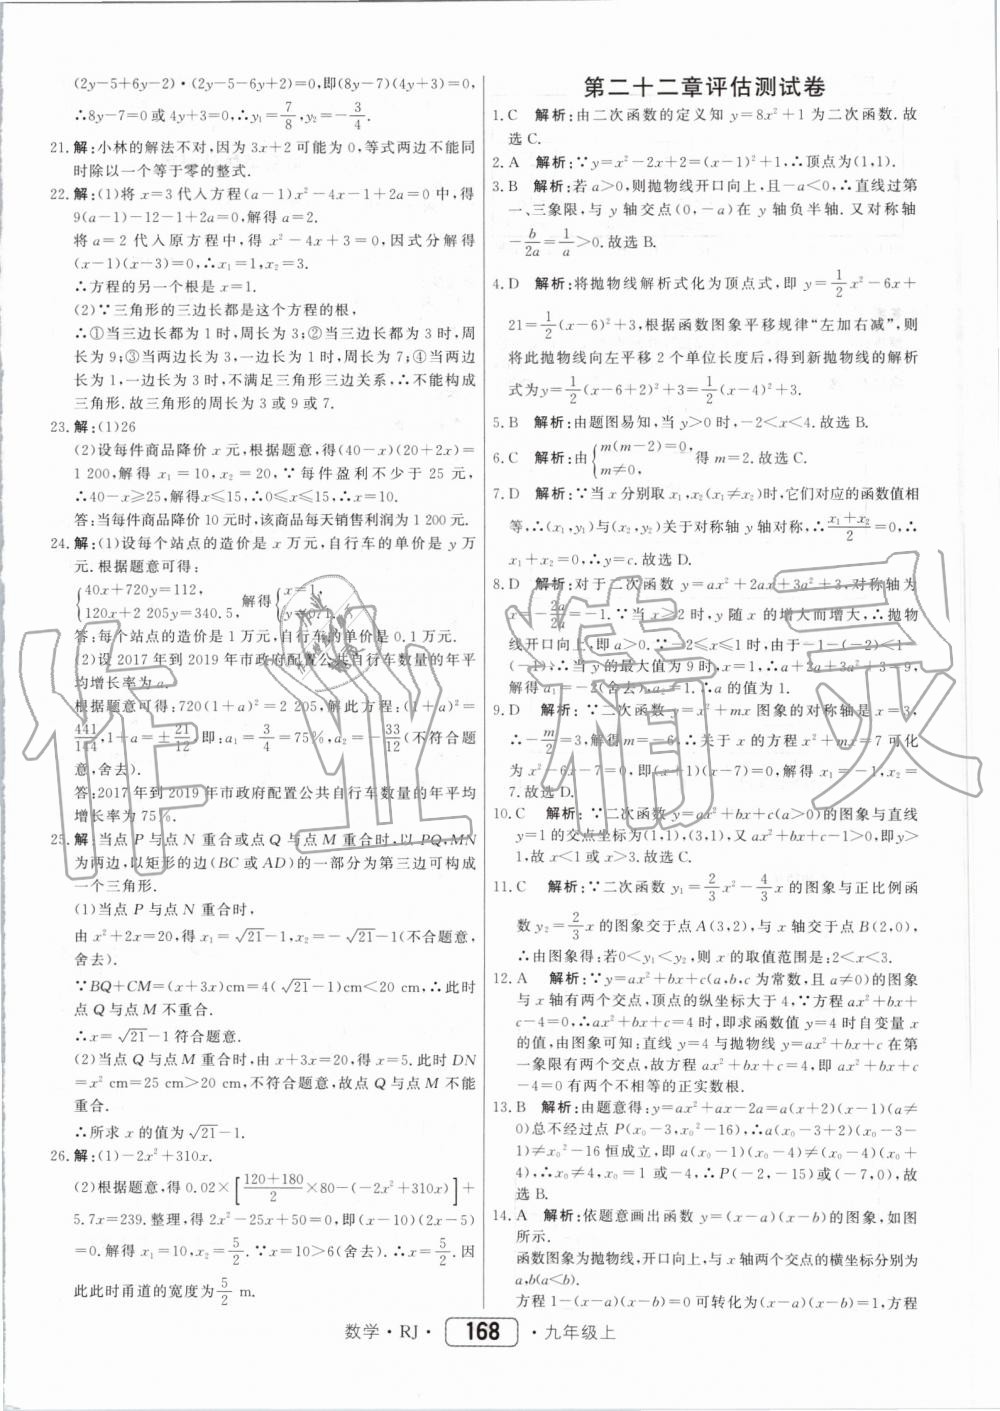 (2y-5+6y-2)·(2y-5-6y+2)=0,即(8y-7)(4y+3)=0,
∴8y-7=0或4y+3=0,∴y₁=7/8,y₂=-3/4.
21.解:小林的解法不对,因为3x+2可能为0,等式两边不能同
时除以一个等于零的整式.
22.解:(1)将x=3代入方程(a-1)x²-4x-1+2a=0中,得
9(a-1)-12-1+2a=0,解得a=2.
将a=2代入原方程中,得x²-4x+3=0,因式分解得
(x-1)(x-3)=0,∴x₁=1,x₂=3.
∴方程的另一个根是x=1.
(2)∵三角形的三边长都是这个方程的根,
∴①当三边长都为1时,周长为3;②当三边长都为3时,周
长为9;③当两边长为3,一边长为1时,周长为7;④当两边
长为1,一边长为3时,不满足三角形三边关系,∴不能构成
三角形.故三角形的周长为3或9或7.
23.解:(1)26
(2)设每件商品降价x元,根据题意,得(40-x)(20+2x)=
1 200,解得x₁=10,x₂=20,∵每件盈利不少于25元,
∴40-x≥25,解得x≤15,∴0≤x≤15,∴x=10.
答:当每件商品降价10元时,该商品每天销售利润为1 200元.
24.解:(1)设每个站点的造价是x万元,自行车的单价是y万
元.根据题意可得:
{40x+720y=112, 120x+2 205y=340.5, 解得{x=1, y=0.1.
答:每个站点的造价是1万元,自行车的单价是0.1万元.
(2)设2017年到2019年市政府配置公共自行车数量的年平
均增长率为a.
根据题意可得:720(1+a)²=2 205,解此方程:(1+a)²=
441/144,1+a=±21/12,即:a₁=3/4=75%,a₂=-33/12(不符合题
意,舍去).
答:2017年到2019年市政府配置公共自行车数量的年平均
增长率为75%.
25.解:当点P与点N重合或点Q与点M重合时,以PQ,MN
为两边,以矩形的边(BC或AD)的一部分为第三边可构成
一个三角形.
(1)当点P与点N重合时,
由x²+2x=20,得x₁=√21-1,x₂=-√21-1(不合题意,
舍去).
∵BQ+CM=(x+3x)cm=4(√21-1)cm<20 cm,∴此时
点Q与点M不重合.
∴x=√21-1符合题意.
(2)当点Q与点M重合时,由x+3x=20,得x=5.此时DN
=x² cm=25 cm>20 cm,不符合题意,故点Q与点M不能
重合.
∴所求x的值为√21-1.
26.解:(1)-2x²+310x.
(2)根据题意,得0.02×[(120+180)/2×80-(-2x²+310x)]+
5.7x=239.整理,得2x²-25x+50=0,即(x-10)(2x-5)
=0.解得x₁=10,x₂=5/2.∵x=10>6(舍去),∴x=5/2.因
此此时甬道的宽度为5/2 m.
第二十二章评估测试卷
1.C 解析:由二次函数的定义知y=8x²+1为二次函数.故
选C.
2.A 解析:∵y=x²-2x+2=(x-1)²+1,∴顶点为(1,1).
3.B 解析:若a>0,则抛物线开口向上,且-a<0,∴直线过第
一、三象限,与y轴交点(0,-a)在y轴负半轴.又对称轴
-b/2a=1/a>0.故选B.
4.D 解析:将抛物线解析式化为顶点式,即y=1/2x²-6x+
21=1/2(x-6)²+3,根据函数图象平移规律“左加右减”,则
将此抛物线向左平移2个单位长度后,得到新抛物线的解析
式为y=1/2(x-6+2)²+3=1/2(x-4)²+3.
5.B 解析:由题图易知,当y>0时,-2<x<4.故选B.
6.C 解析:由{m(m-2)=0, m≠0, 得m=2.故选C.
7.D 解析:∵当x分别取x₁,x₂(x₁≠x₂)时,它们对应的函数值相
等,∴(x₁,y₁)与(x₂,y₂)关于对称轴y轴对称,∴(x₁+x₂)/2=0,∴
x₁+x₂=0,∴y=c.故选D.
8.D 解析:对于二次函数y=ax²+2ax+3a²+3,对称轴为
x=-2a/2a=-1.∵当x≥2时,y随x的增大而增大,∴抛物
线开口向上,即a>0.∵-2≤x≤1时,由于-1-(-2)<1-
(-1),∴当y的最大值为9时,x=1,∴a+2a+3a²+3=9,
解得a₁=-2(舍去),a₂=1.∴a的值为1.
9.D 解析:∵二次函数y=x²+mx图象的对称轴是x=3,
∴-m/2=3,解得m=-6,∴关于x的方程x²+mx=7可化
为x²-6x-7=0,即(x+1)(x-7)=0,解得x₁=-1,x₂=
7.故选D.
10.C 解析:∵二次函数y=ax²+bx+c(a>0)的图象与直线
y=1的交点坐标为(1,1),(3,1),又ax²+bx+c-1>0,即y>
1,故x<1或x>3.故选C.
11.C 解析:∵二次函数y₁=2/3x²-4/3x的图象与正比例函
数y₂=2/3x的图象交于点A(3,2),与x轴交于点B(2,0),
∴由图象得:若0<y₁<y₂,则x的取值范围是:2<x<3.
12.A 解析:∵y=ax²+bx+c(a,b,c为常数,且a≠0)的图象
与x轴有两个交点,顶点的纵坐标大于4,∵方程ax²+bx+
c-4=0,∴ax²+bx+c=4时,即求函数值y=4时自变量x
的值,由图象可知:直线y=4与抛物线y=ax²+bx+c在第
一象限有两个交点,故方程ax²+bx+c=4,即ax²+bx+c
-4=0有两个不相等的正实数根.
13.B 解析:由题意得:y=ax²+ax-2a=a(x+2)(x-1)(a≠
0)总不经过点P(x₀-3,x₀²-16),∴a(x₀-3+2)(x₀-3-
1)≠x₀²-16恒成立,即a(x₀-1)(x₀-4)≠(x₀-4)(x₀+
4),∴x₀≠4,x₀=1或-4,∴P(-2,-15)或(-7,0),故
选B.
14.A 解析:依题意画出函数y=(x-a)(x-b)的图象,如图
所示.
函数图象为抛物线,开口向上,与x轴两个交点的横坐标分别为
a,b(a<b).
方程1-(x-a)(x-b)=0可转化为(x-a)(x-b)=1,方程
数学·RJ· 168 ·九年级上
作业精灵